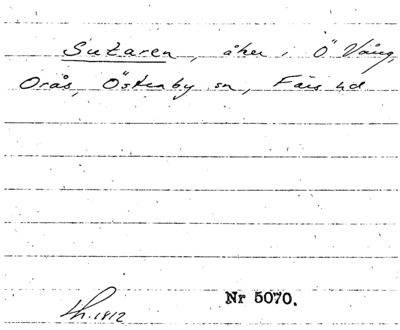 Sutaren, åker i Ö Vång,
Orås, Östraby sn, Färs hd
1812
Nr 5070.